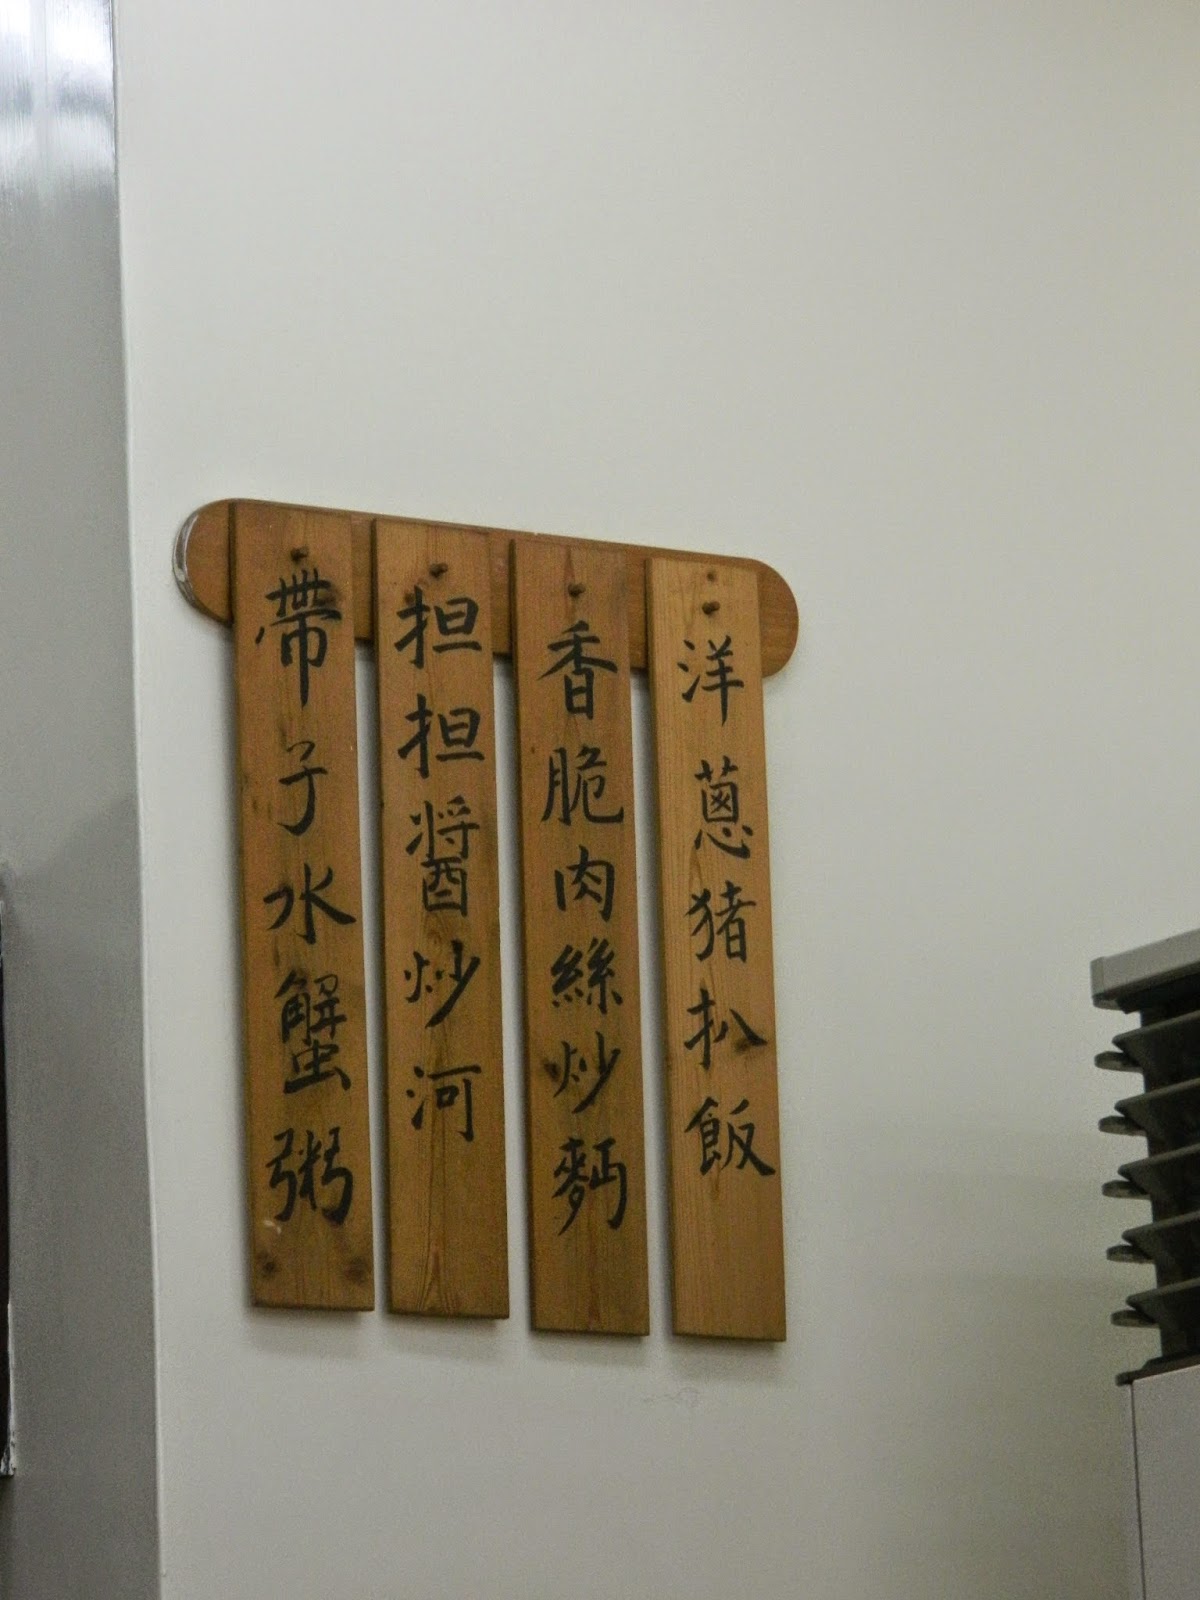 洋蔥猪扒飯
香脆肉絲炒麪
担担醬炒河
帶子水蟹粥